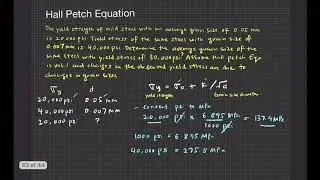 Hall Petch Equation
The yield stress of mild steel with an average grain size of 0.05 mm
is 20,000 psi. Yield stress of the same steel with grain size of
0.007 mm is 40,000 psi. Determine the average grain size of the
same steel with yield stress of 30,000 psi. Assume Hall Petch Eqn
is valid and changes in the observed yield stress are due to
changes in grain sizes
σy d
20,000 psi 0.05 mm
40,000 psi 0.007 mm
20,000 psi ?
σy = σo + k/√d
yield strength
grain size diameter
- convert psi to MPa
20,000 psi × 6.895 MPa / 1000 psi = 137.9 MPa
1000 psi = 6.895 MPa
40,000 psi = 275.8 MPa
43 of 44